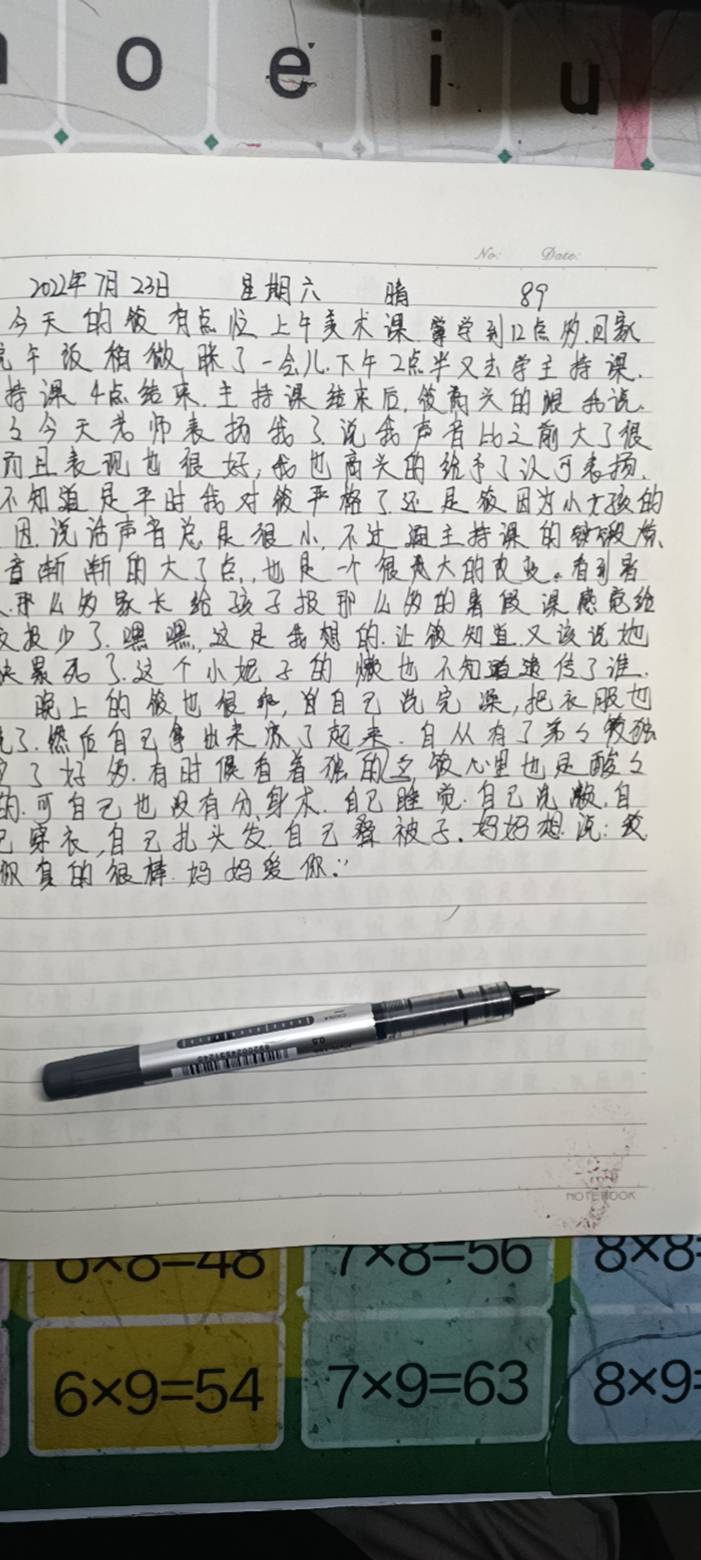 o e i u
No: Date:
2022年7月23日 星期六 晴 89
今天的筱有点忙上午美术课学到12点多.回家
午饭稍微眯了一会儿.下午2点半又去学主持课.
持课4点结束.主持课结束后,筱高兴的跟我说.
今天老师表扬我了.说我声音比之前大了很
而且表现也很好,我也高兴的给予了认可表扬.
不知道是平时我对筱严格了还是筱因为小女孩的
因.说话声音总是很小.不过 主持课的锻炼.
音渐渐的大了点,也是一个很大的改变。看到着
那么多家长给孩子报那么多的暑假课感觉给
报少了.嘿嘿,这是我想的.让筱知道又该说她
累死了.这个小妮子的懒也不知道遗传了谁.
晚上的筱也很乖,自己洗完澡,把衣服也
洗了.然后自己拿出来凉了起来.自从有了弟々筱独
了好多.有时候看着独的立筱心里也是酸々
的.可自己也没有分身术.自己睡觉.自己洗漱.自
己穿衣,自己扎头发,自己叠被子.妈妈想说:筱
你真的很棒.妈妈爱你
NOTEBOOK
6×8=48 7×8=56 8×8=
6×9=54 7×9=63 8×9=